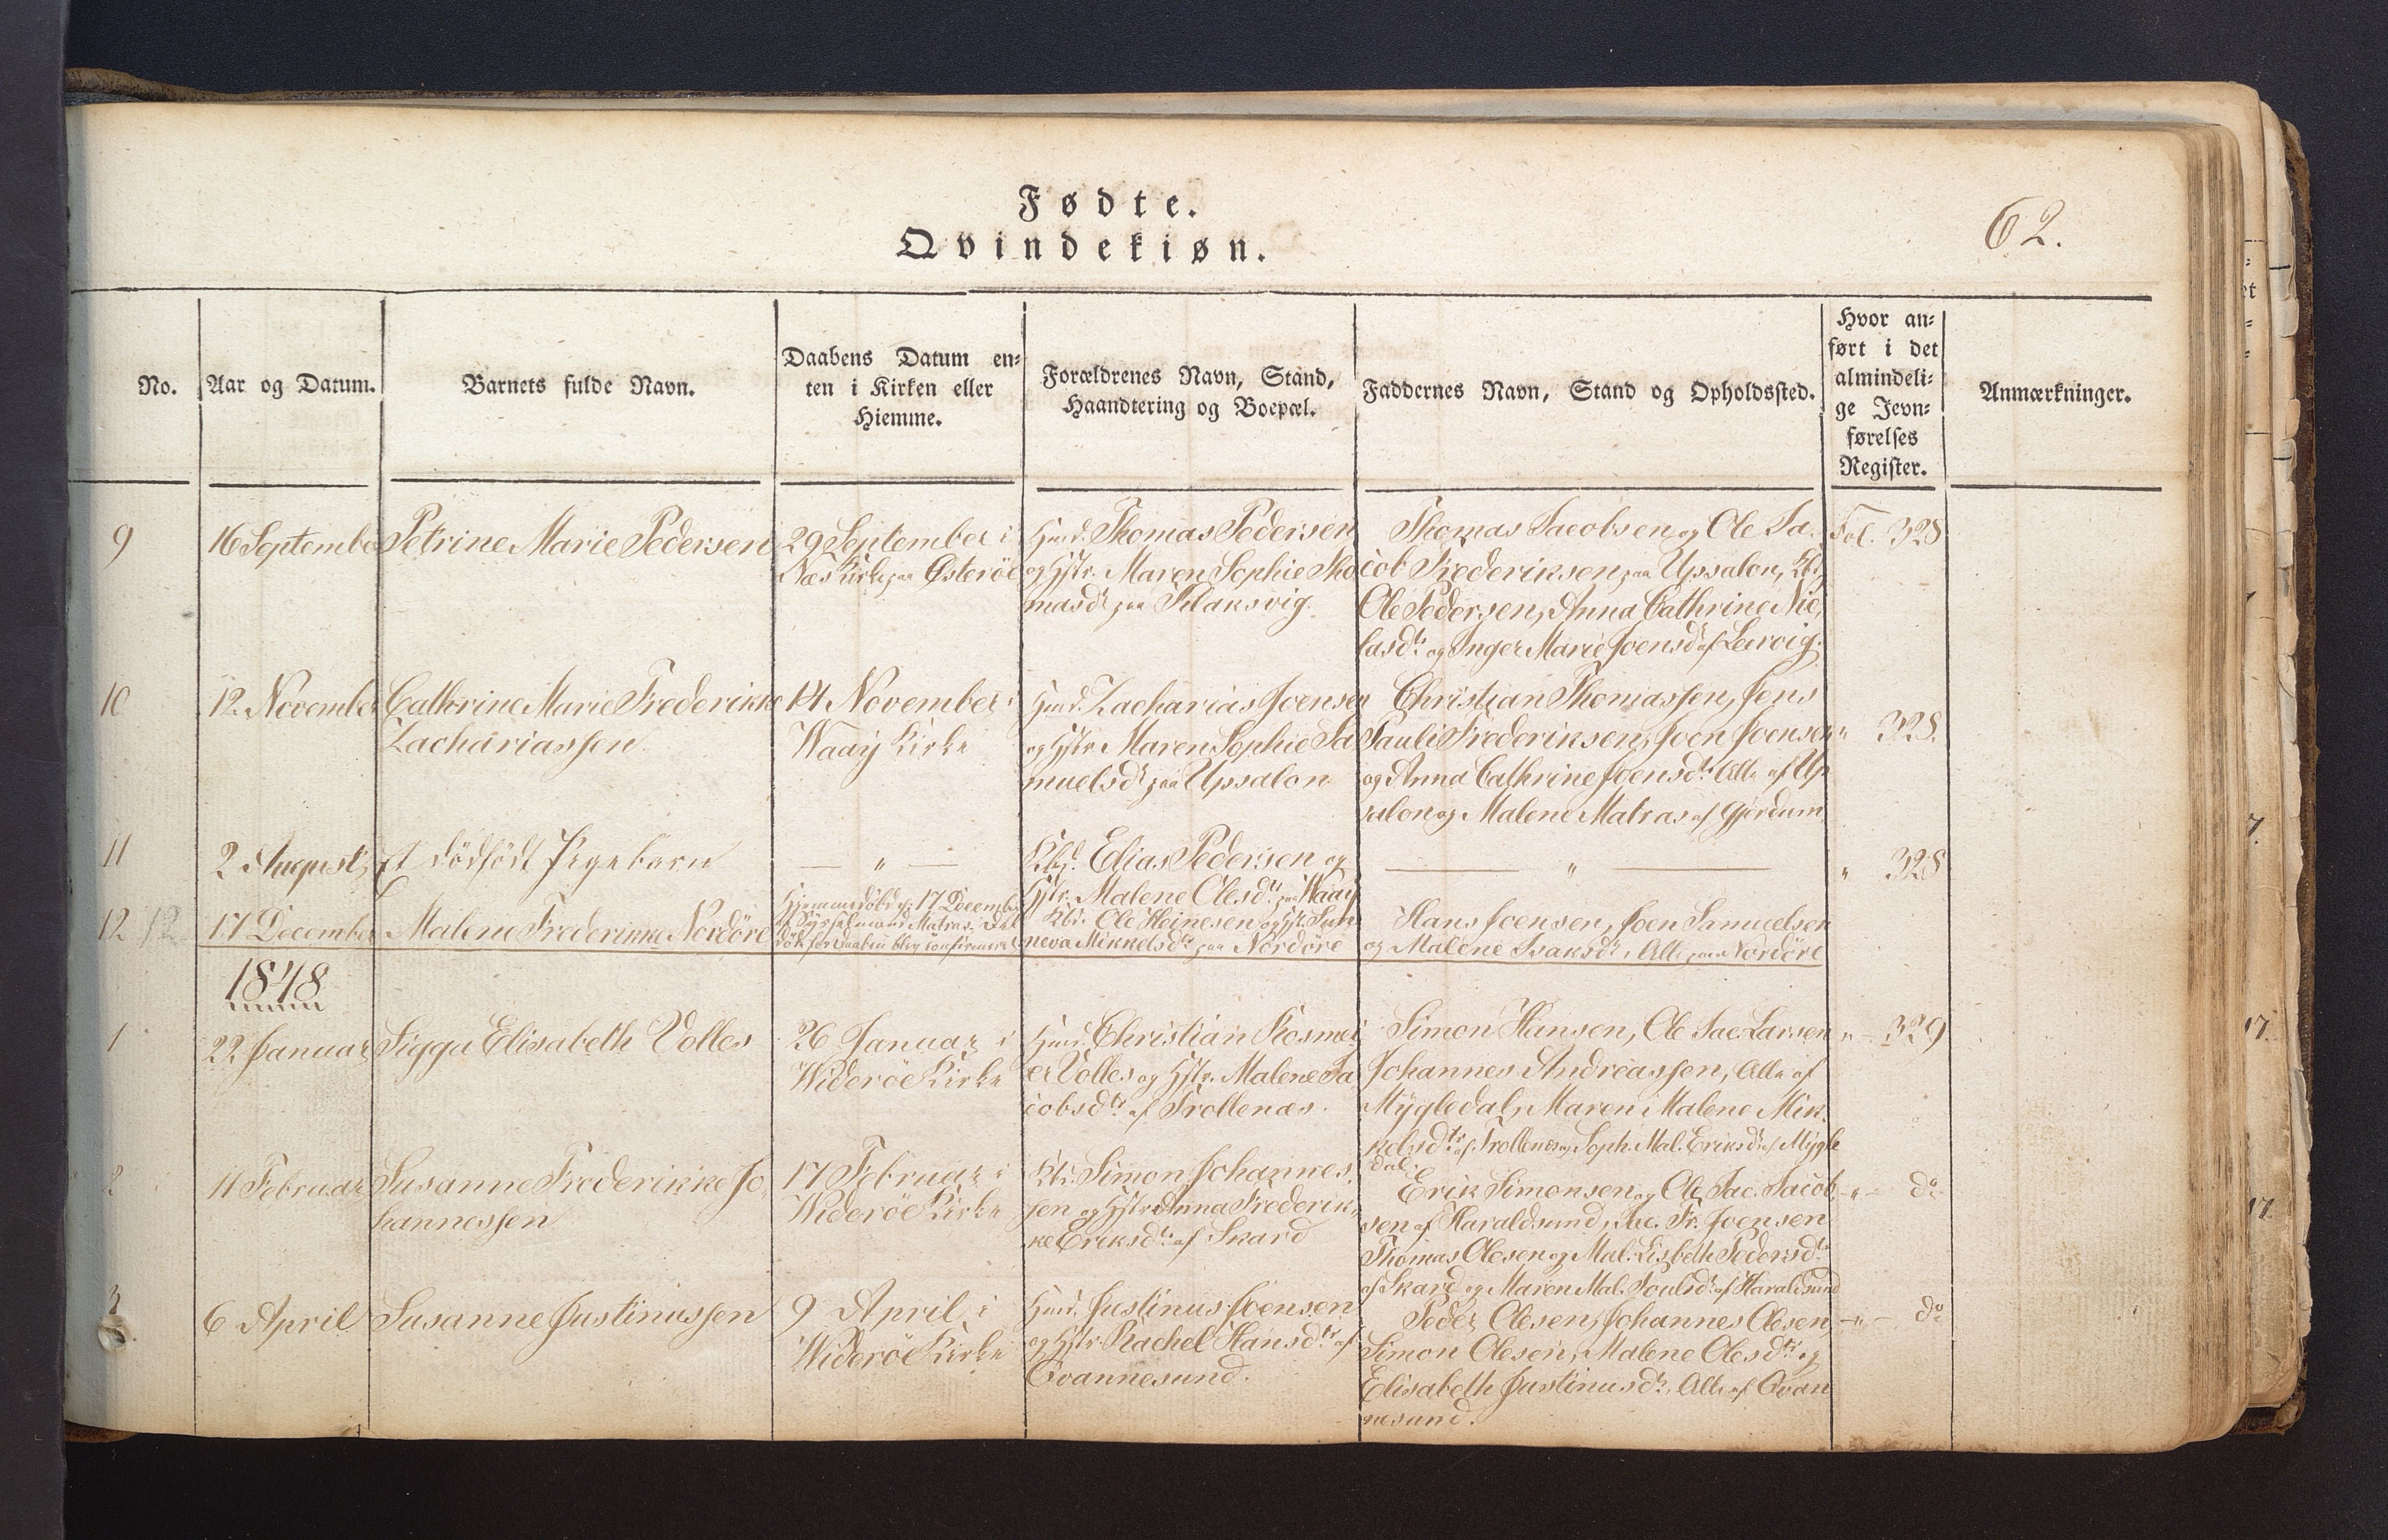 Fødte.
Qvindekiøn.
62.
No.
Aar og Datum.
Barnets fulde Navn.
Daabens Datum en-
ten i Kirken eller
Hiemme.
Forældrenes Navn, Stand,
Haandtering og Boepæl.
Faddernes Navn, Stand og Opholdssted.
Hvor an-
ført i det
almindeli-
ge Jevn-
førelses
Register.
Anmærkninger.
9
16 September
Petrine Marie Pedersen
29 September i
Næs Kirke paa Østerøe
Huusmd. Thomas Pedersen
og Hstr. Maren Sophie Tho
masdr paa Klaksvig.
Thomas Jacobsen og Ole Ja-
cob Frederiksen paa Upsalon, Kbd.
Ole Pedersen, Anna Cathrine Nic-
lasdtr og Inger Marie Joensdr af Leervig.
Fol. 328
10
12 November
Cathrine Marie Frederikke
Zachariassen
14 November i
Waay Kirke
Huusmd. Zacharias Joensen
og Hstr. Maren Sophie Sa
muelsdr paa Upsalon
Christian Thomassen, Jens
Pauli Frederiksen, Joen Joensen
og Anna Cathrine Joensdtr Alle af Up
salon og Malene Matras af Gjerdum,
" 328.
11
2 August,
et dødfødt Pigebarn
— " —
Kbd. Elias Pedersen og
Hstr. Malene Olesdtr paa Waay
— " —
" 328
12 12
17 December
Malene Frederikke Nordøre
Hjemmedøbt d. 17 December
af Sysselmand Matras,
for Daaben blev confirmeret
Kbd. Ole Heinesen og Hstr. Sun
neva Mikkelsdr paa Nordøre
Hans Joensen, Joen Samuelsen
og Malene Isaksdr, Alle paa Nordøre
1848
1
22 Januar
Sigga Elisabeth Volles
26 Januar i
Widerøe Kirke
Huusmd. Christian Kosmei
er Volles og Hstr. Malene Ja
cobsdtr af Trollenæs.
Simon Hansen, Ole Jac. Larsen
Johannes Andreassen, Alle af
Mygledal, Maren Malene Mik-
kelsdtr af Trollenæs og Soph. Mal. Eriksdr af Mygle
dal.
" — 329
2
11 Februar
Susanne Frederikke Jo-
hannessen
17 Februar i
Widerøe Kirke
Kbd. Simon Johannes-
sen og Hstr Anna Frederik-
ke Eriksdtr af Skard
Erik Simonsen og Ole Jac. Jacob
sen af Haraldsund, Jac. Fr. Joensen
Thomas Olesen og Mal. Lisbeth Pedersdtr
af Skard og Maren Mal. Poulsdr af Haraldsund
— " — do
3
6 April
Susanne Justinussen
9 April i
Widerøe Kirke
Huusmd. Justinus Joensen
og Hstr Rachel Hansdtr af
Qvannesund.
Peder Olesen, Johannes Olesen
Simon Olesen, Malene Olesdtr og
Elisabeth Justinusdr, Alle af Qvan
nesund.
— " — do